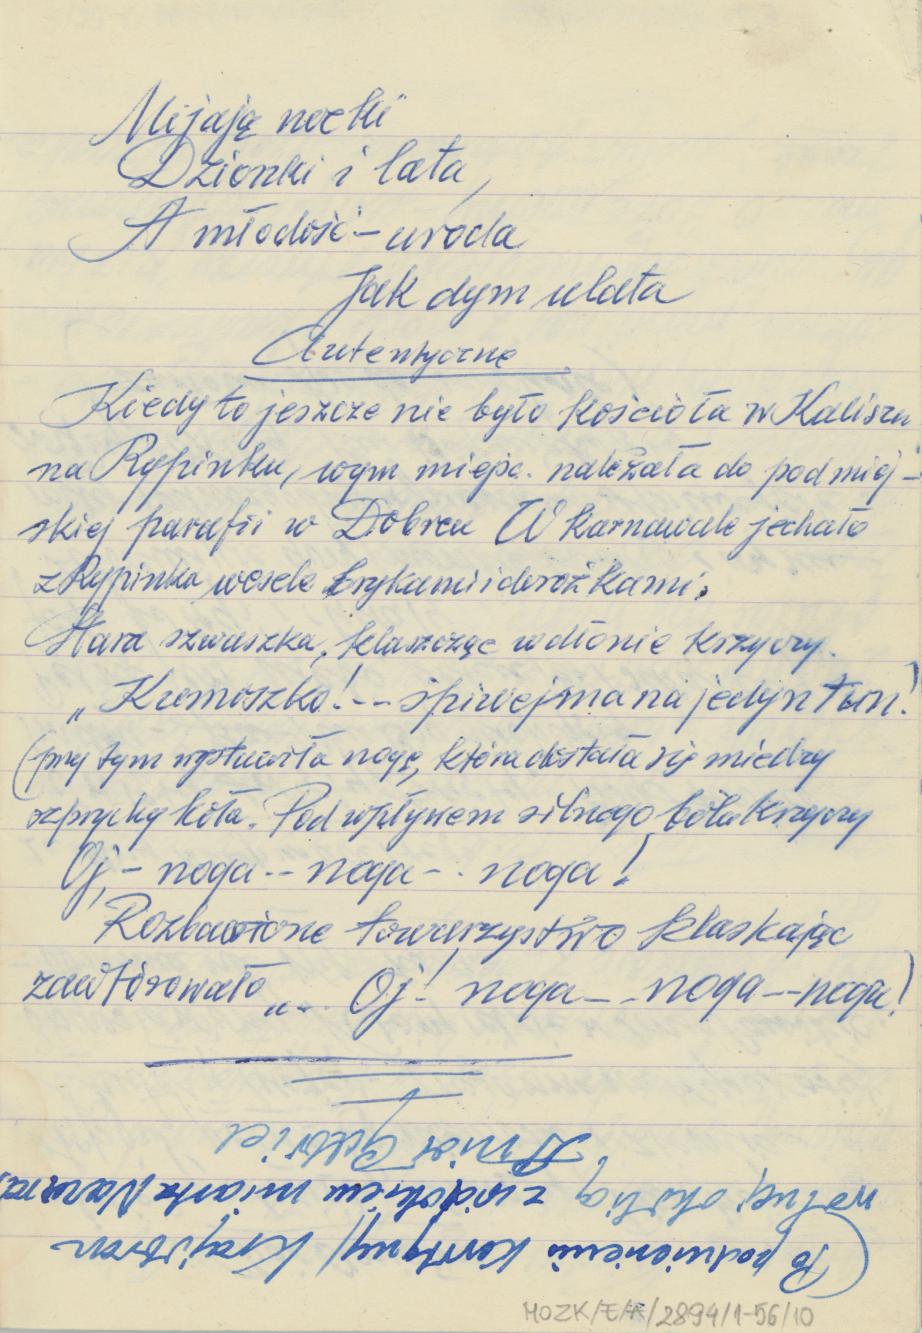 Mijają nocki
Dzionki i lata,
A młodość – uroda
Jak dym ulata
Autentyczne
Kiedy to jeszcze nie było kościoła w Kaliszu
na Rypinku, wym miejsc. należała do podmiej-
skiej parafii w Dobrcu W karnawale jechało
z Rypinka wesele brykami i dorożkami.
Stara szwaszka, klaszcząc w dłonie krzyczy.
„Kumoszko! -- śpiwejma na jedyn tun!
(przy tym wystawiła nogę, która dostała się miedzy
szprychy koła. Pod wpływem silnego bólu krzyczy
Oj, – noga -- noga -- noga!
Rozbawione towarzystwo klaskając
zawtórowało „.. Oj! noga -- noga -- noga!
(Po podniesieniu kurtyny) Krajobraz
wolnej okolicy z widokiem miasta
Anioł Gabriel
MOZK/E/A/2894/1-56/10